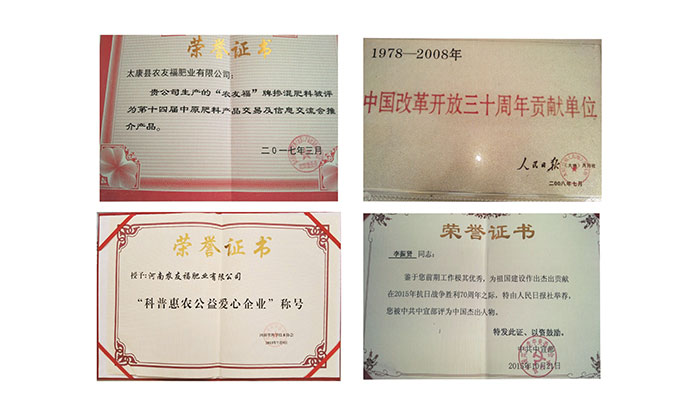 荣誉证书
太康县农友福肥业有限公司:
贵公司生产的“农友福”牌掺混肥料被评
为第十四届中原肥料产品交易及信息交流会推
介产品。
二〇一七年三月
1978—2008年
中国改革开放三十周年贡献单位
人民日报
二00八年七月
荣誉证书
授予:河南农友福肥业有限公司
“科普惠农公益爱心企业”称号
荣誉证书
李振贤 同志:
鉴于您前期工作极其优秀,为祖国建设作出杰出贡献
在2015年抗日战争胜利70周年之际,特由人民日报社举荐,
您被中共中宣部评为中国杰出人物。
特发此证、以资鼓励。
中共中宣部
2015年10月21日